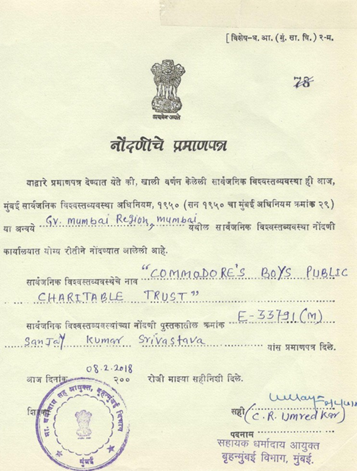 [ विशेष-ध. आ. (मुं. सा. वि.) १-म.
78
सत्यमेव जयते
नोंदणीचे प्रमाणपत्र
याद्वारे प्रमाणपत्र देण्यात येते की, खाली वर्णन केलेली सार्वजनिक विश्वस्तव्यवस्था ही आज,
मुंबई सार्वजनिक विश्वस्तव्यवस्था अधिनियम, १९५० (सन १९५० चा मुंबई अधिनियम क्रमांक २९)
या अन्वये Gr. Mumbai Region, Mumbai येथील सार्वजनिक विश्वस्तव्यवस्था नोंदणी
कार्यालयात योग्य रीतीने नोंदण्यात आलेली आहे.
सार्वजनिक विश्वस्तव्यवस्थेचे नाव "COMMODORE'S BOYS PUBLIC
CHARITABLE TRUST"
सार्वजनिक विश्वस्तव्यवस्थांच्या नोंदणी पुस्तकातील क्रमांक E-33791 (M)
Sanjay Kumar Srivastava यांस प्रमाणपत्र दिले.
08.2.2018
आज दिनांक २०० रोजी माझ्या सहीनिशी दिले.
सही
(C.R. Umredkar)
पदनाम
सहायक धर्मादाय आयुक्त
बृहन्मुंबई विभाग, मुंबई.
मुंबई